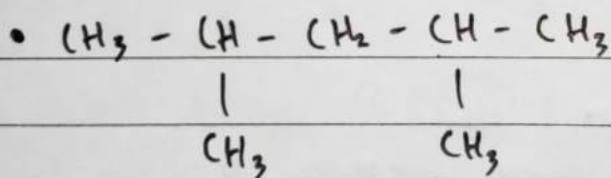 • CH₃ - CH - CH₂ - CH - CH₃
| |
CH₃ CH₃